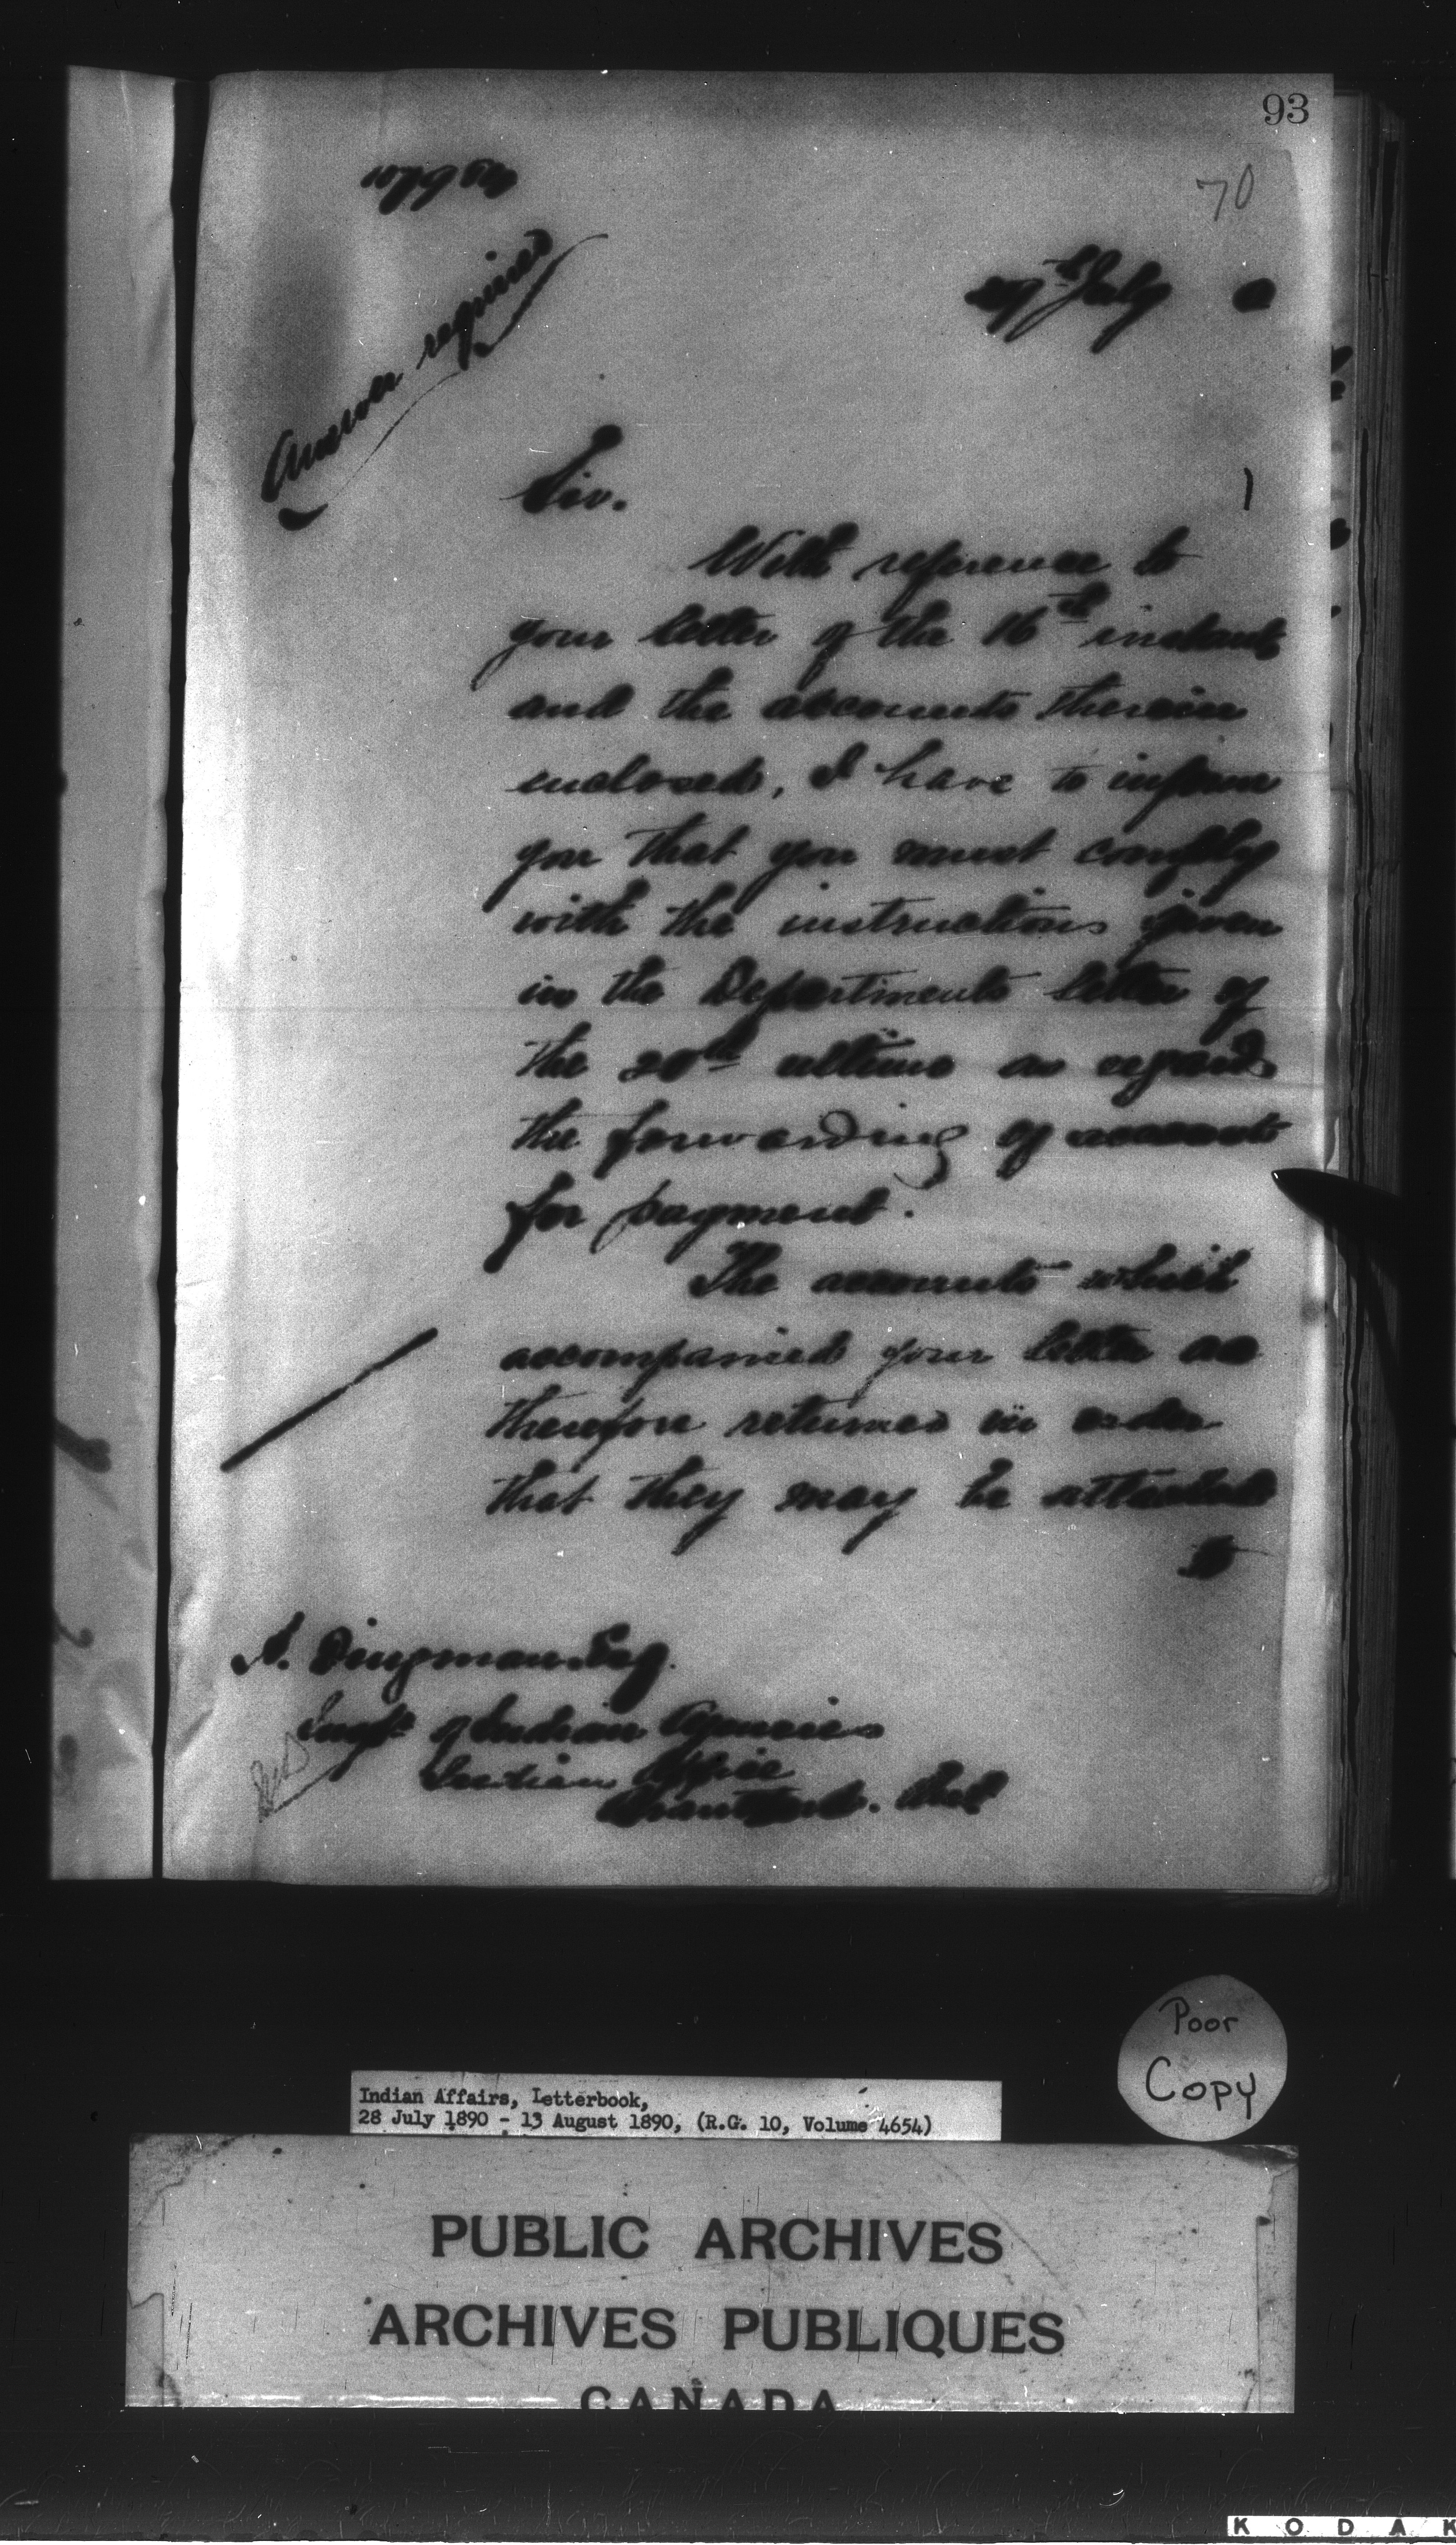 93
70
Answer required
29th July 0
Sir.
With reference to
your letter of the 16th instant
and the accounts therein
enclosed, I have to inform
you that you must comply
with the instructions given
in the Departments letter of
the 20th ultimo as regards
the forwarding of accounts
for payment.
The accounts which
accompanied your letter are
therefore returned in order
that they may be attached
to
A. Dingman Esq.
Inspr of Indian Agencies
Indian Office
Brantford. Ont
Poor
Copy
Indian Affairs, Letterbook,
28 July 1890 - 13 August 1890, (R.G. 10, Volume 4654)
PUBLIC ARCHIVES
ARCHIVES PUBLIQUES
CANADA
KODAK